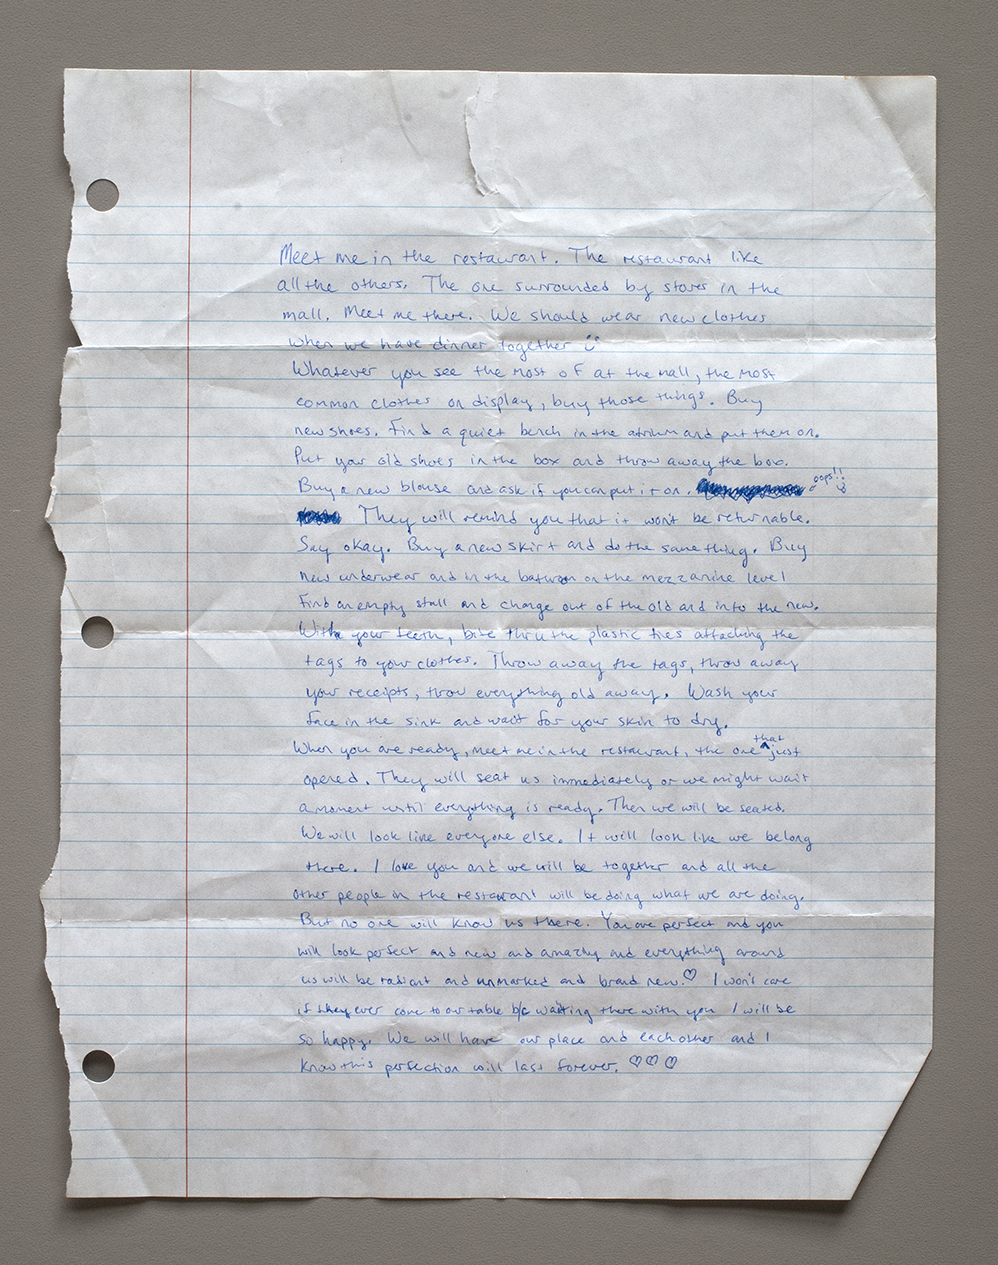 Meet me in the restaurant. The restaurant like
all the others. The one surrounded by stores in the
mall. Meet me there. We should wear new clothes
when we have dinner together
Whatever you see the most of at the mall, the most
common clothes on display, buy those things. Buy
new shoes. Find a quiet bench in the atrium and put them on.
Put your old shoes in the box and throw away the box.
Buy a new blouse and ask if you can put it on. oops!!
They will remind you that it won't be returnable.
Say okay. Buy a new skirt and do the same thing. Buy
new underwear and in the bathroom on the mezzanine level
find an empty stall and change out of the old and into the new.
With your teeth, bite thru the plastic ties attaching the
tags to your clothes. Throw away the tags, throw away
your receipts, throw everything old away. Wash your
face in the sink and wait for your skin to dry.
When you are ready, meet me in the restaurant, the one that just
opened. They will seat us immediately or we might wait
a moment until everything is ready. Then we will be seated.
We will look like everyone else. It will look like we belong
there. I love you and we will be together and all the
other people in the restaurant will be doing what we are doing.
But no one will know us there. You are perfect and you
will look perfect and new and amazing and everything around
us will be radiant and unmarked and brand new.♡ I won't care
if they ever come to our table b/c waiting there with you I will be
so happy. We will have our place and each other and I
know this perfection will last forever. ♡♡♡